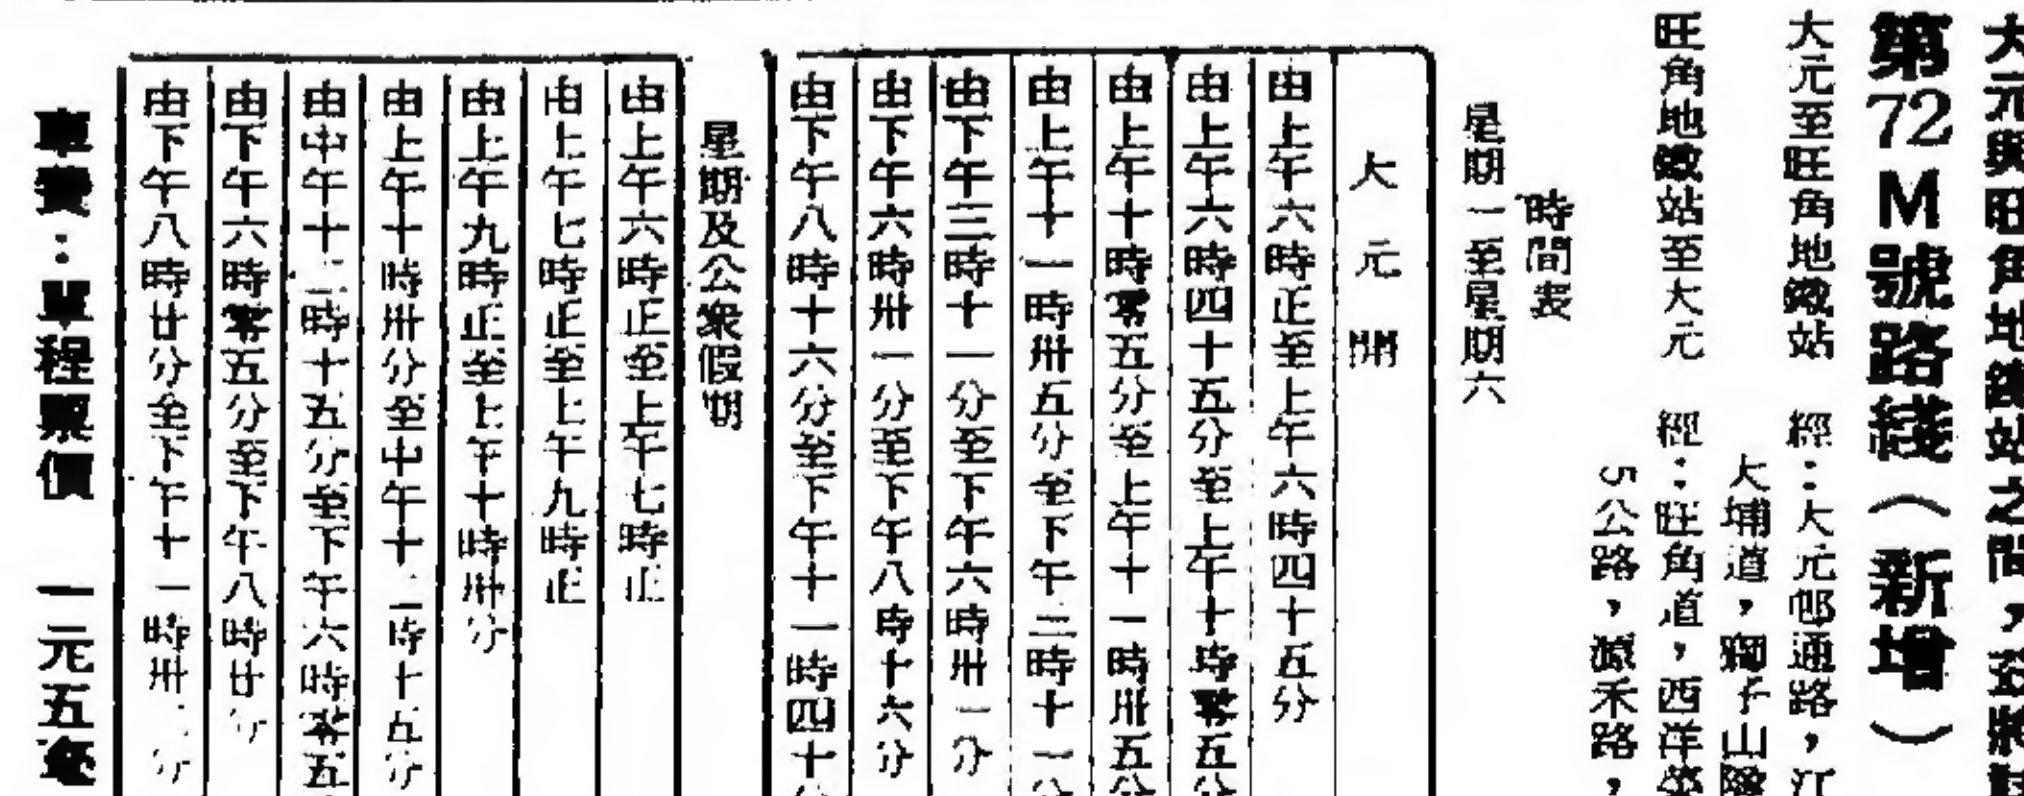 大元與旺角地鐵站之間，茲將
第72M號路綫（新增）
大元至旺角地鐵站 經：大元邨通路，汀
大埔道，獅子山隧
旺角地鐵站至大元 經：旺角道，西洋菜
5公路，源禾路，
時間表
星期一至星期六
大元開
由上午六時正至上午六時四十五分
由上午六時四十五分至上午十時零五分
由上午十時零五分至上午十一時卅五分
由上午十一時卅五分至下午三時十一分
由下午三時十一分至下午六時卅一分
由下午六時卅一分至下午八時十六分
由下午八時十六分至下午十一時四十
星期及公衆假期
由上午六時正至上午七時正
由上午七時正至上午九時正
由上午九時正至上午十時卅分
由上午十時卅分至中午十二時十五分
由中午十二時十五分至下午六時零五
由下午六時零五分至下午八時廿分
由下午八時廿分至下午十一時卅 分
車費：單程票價 一元五毫